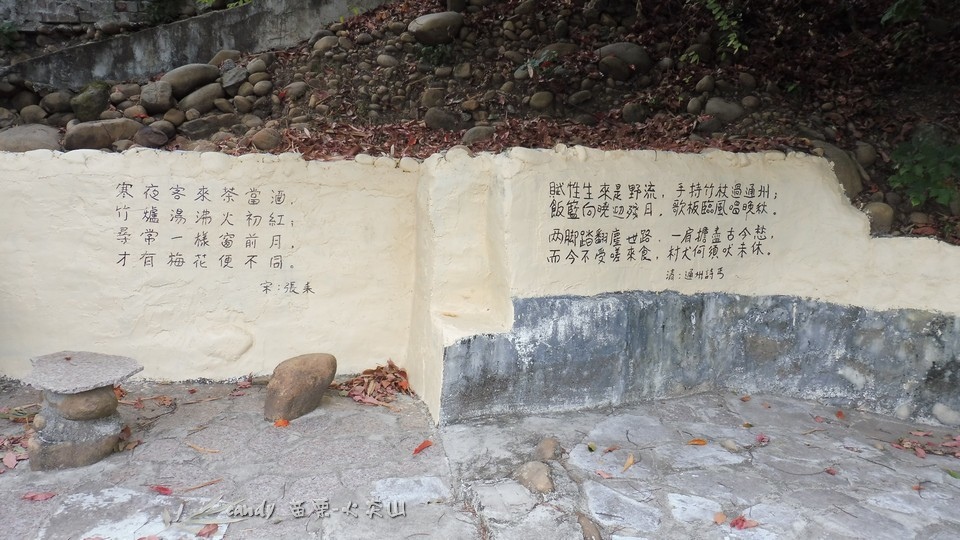 寒夜客來茶當酒，
竹爐湯沸火初紅；
尋常一樣窗前月，
才有梅花便不同。
宋：張耒
賦性生來是野流，手持竹杖過通州；
飯籃向曉迎殘月，歌板臨風唱晚秋。
两脚踏翻塵世路，一肩擔盡古今愁，
而今不受嗟來食，村犬何須吠未休。
清：通州詩丐
candy 苗栗-火炎山